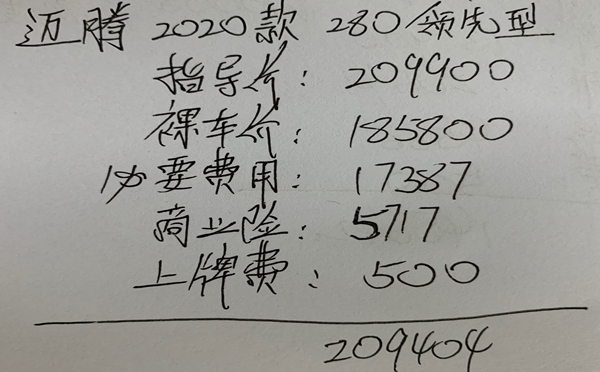 迈腾 2020款 280领先型
指导价：209900
裸车价：185800
必要费用：17387
商业险：5717
上牌费：500
209404